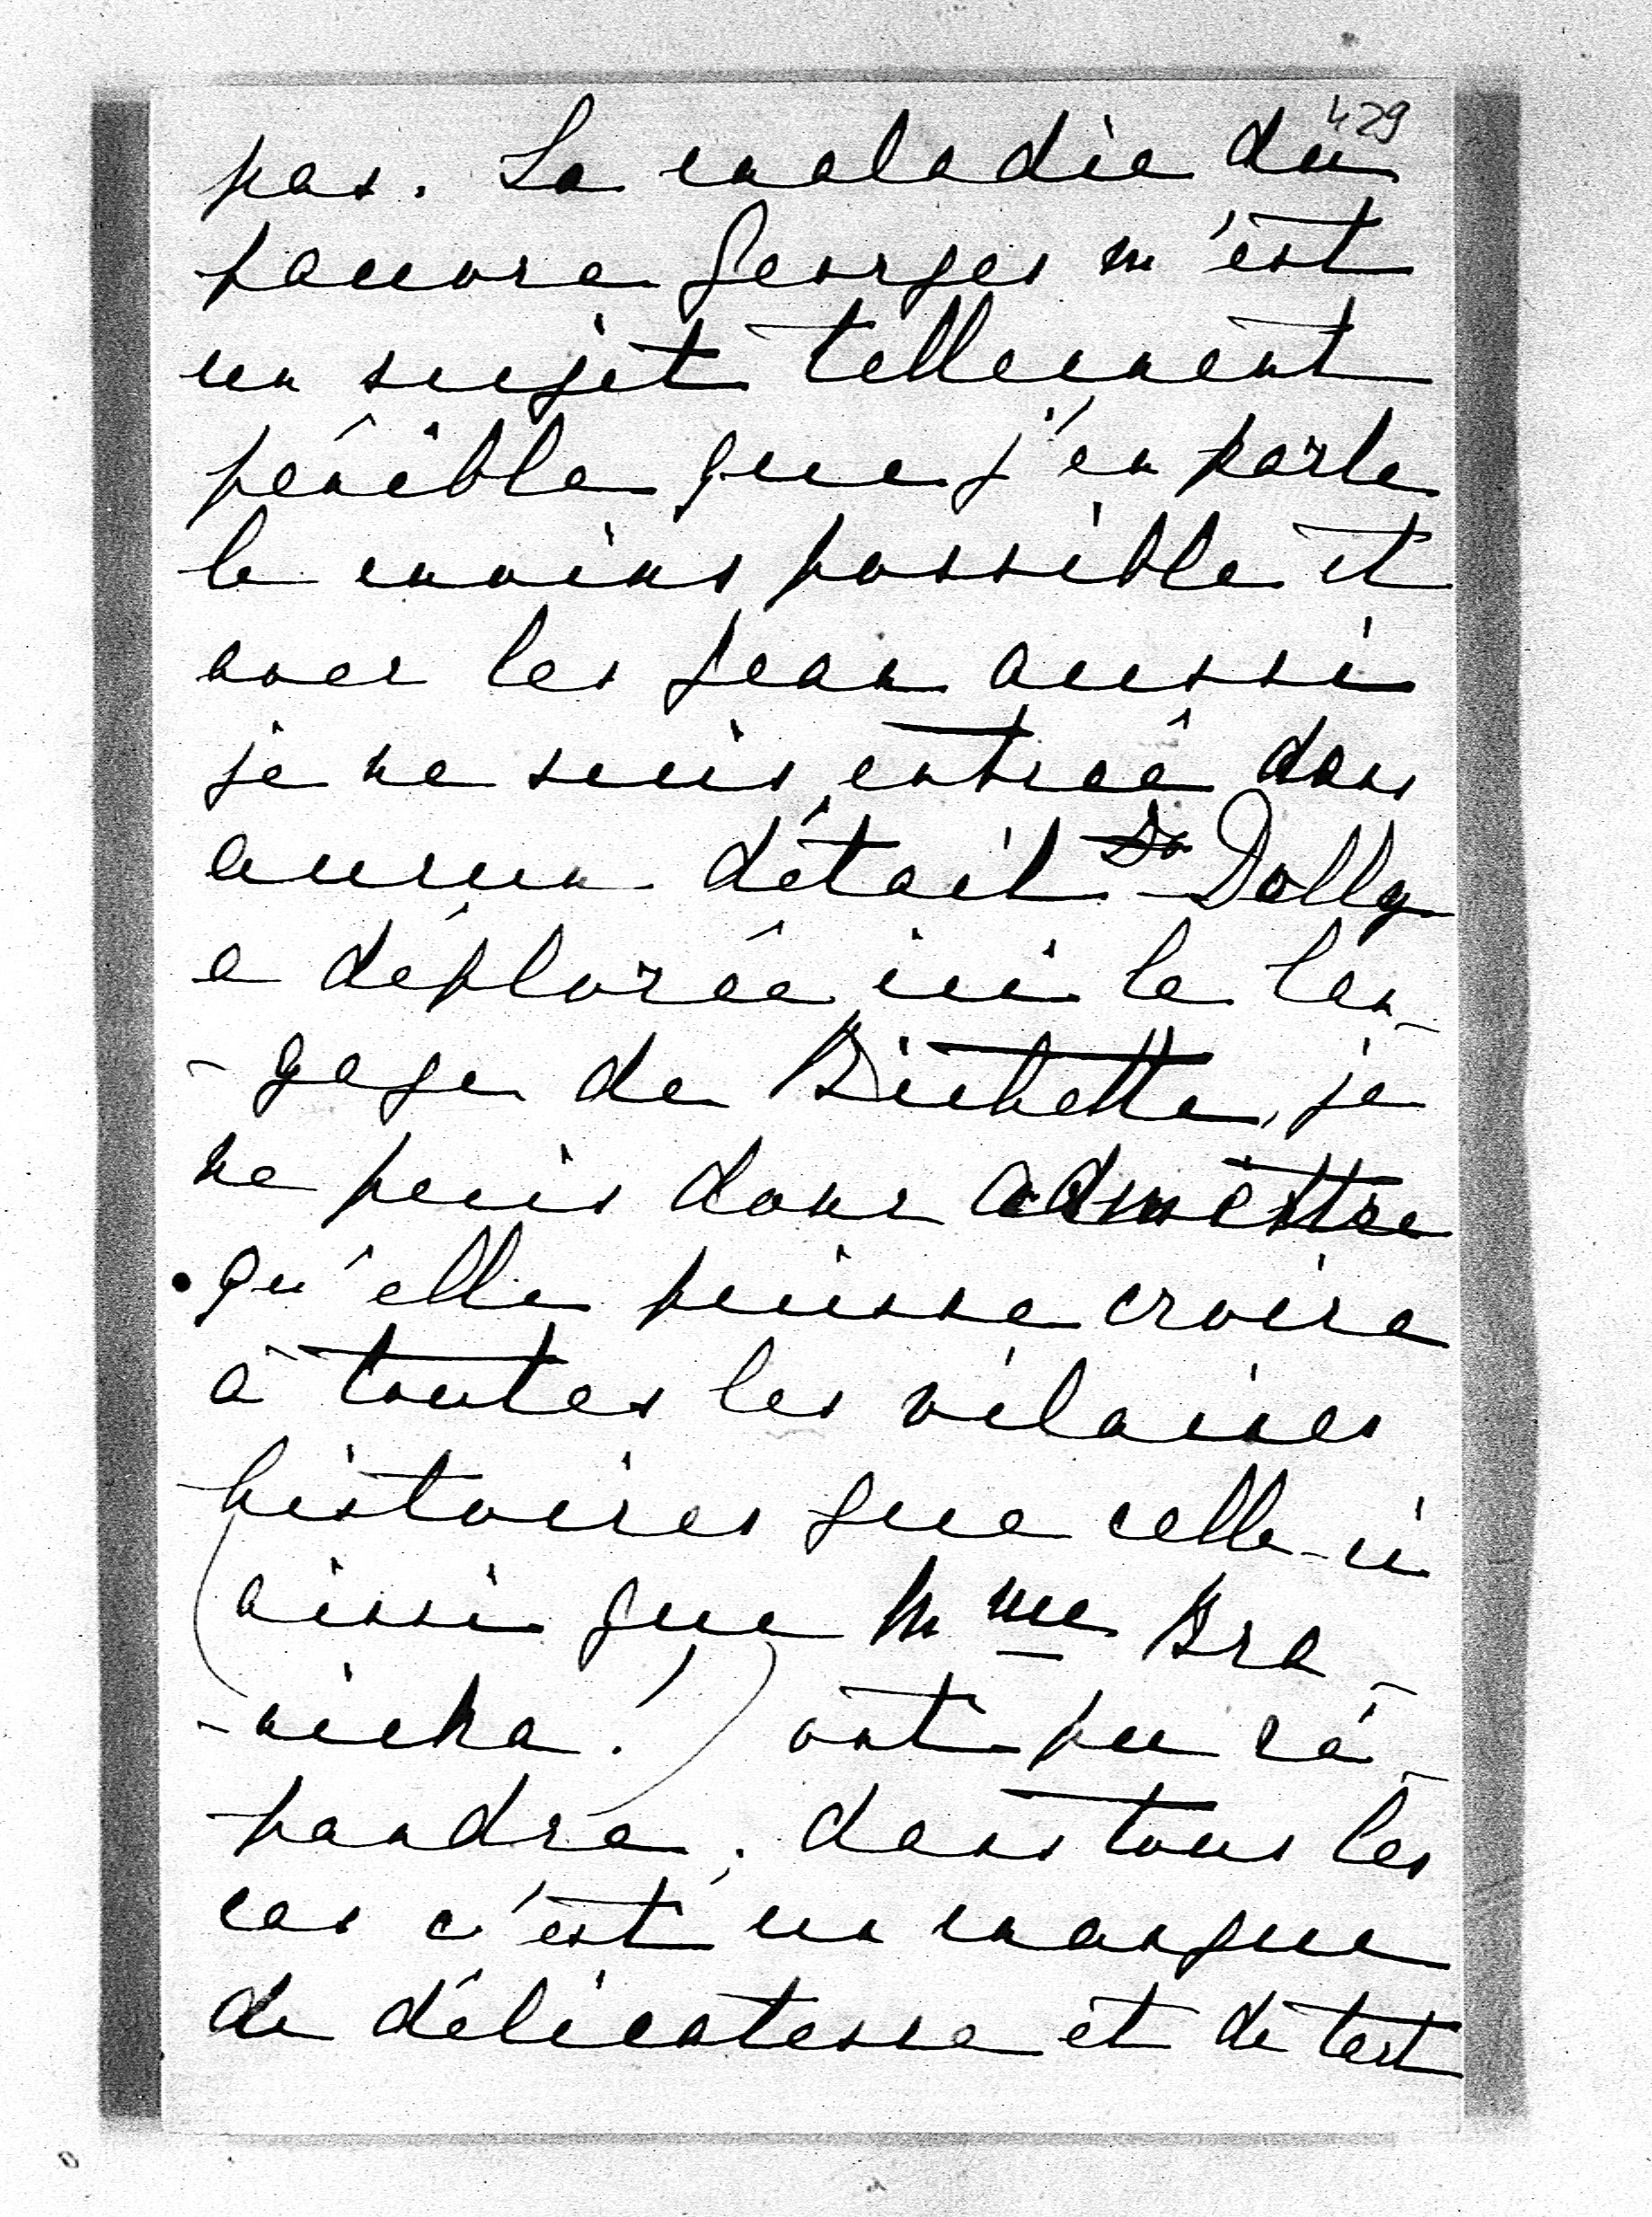 429
pas. La maladie du
pauvre Georges m'est
un sujet tellement
pénible que j'en parle
le moins possible et
avec les Jean aussi
je ne suis entrée dans
aucun détail ~~Do~~ Dolly
a déplorée ici le lan-
-gage de Bichette, je
ne puis donc admettre
qu'elle puisse croire
à toutes les vilaines
histoires que celle-ci
(ainsi que Mme Bra-
-nicka!) ont pu ré-
pandre; dans tous les
cas c'est un manque
de délicatesse et de tact